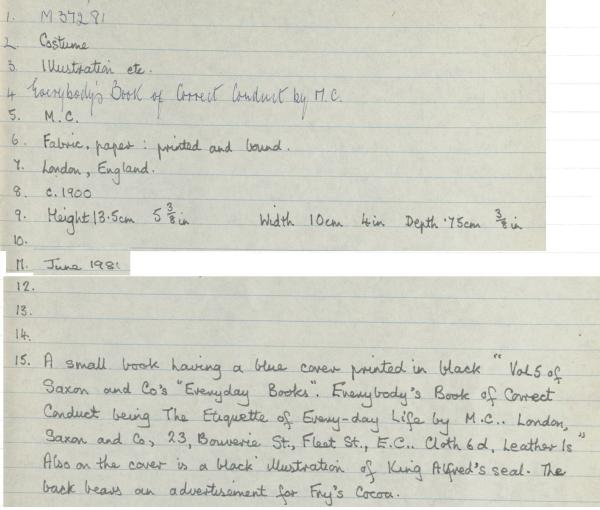 1. M37281
2. Costume
3. Illustration etc.
4 Everybody's Book of Correct Conduct by M.C.
5. M.C.
6. Fabric, paper : printed and bound.
7. London, England.
8. c.1900
9. Height 13.5cm 5 3/8 in Width 10cm 4in Depth .75cm 3/8 in
10.
11. June 1981
12.
13.
14.
15. A small book having a blue cover printed in black "Vol 5 of
Saxon and Co's "Everyday Books". Everybody's Book of Correct
Conduct being The Etiquette of Every-day Life by M.C.. London,
Saxon and Co, 23, Bouverie St., Fleet St., E.C.. Cloth 6d, Leather 1s"
Also on the cover is a black illustration of King Alfred's seal. The
back bears an advertisement for Fry's Cocoa.